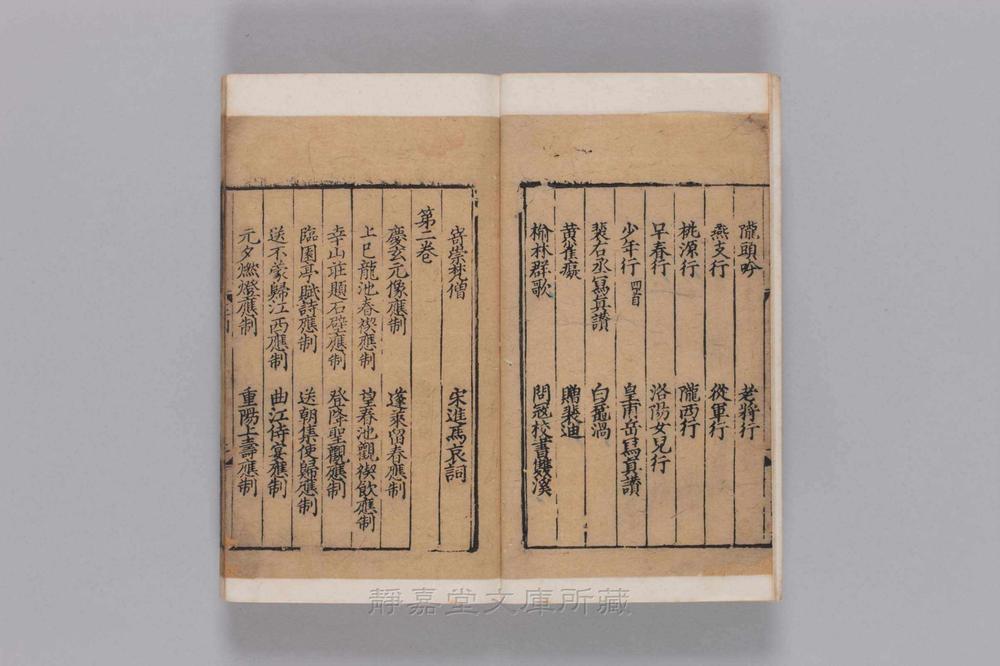 隴頭吟　老將行
燕支行　從軍行
桃源行　隴西行
早春行　洛陽女兒行
少年行四首　皇甫岳寫真讃
裴右丞寫真讃　白黿渦
黄雀癡　贈裴迪
榆林群歌　問寇校書雙溪
寄崇梵僧　宋進馬哀詞
第二卷
慶玄元像應制　蓬萊留春應制
上巳龍池春禊應制　望春池觀禊飲應制
幸山莊題石壁應制　登降聖觀應制
臨園亭賦詩應制　送朝集使歸應制
送不蒙歸江西應制　曲江侍宴應制
元夕燃燈應制　重陽上壽應制
靜嘉堂文庫所藏